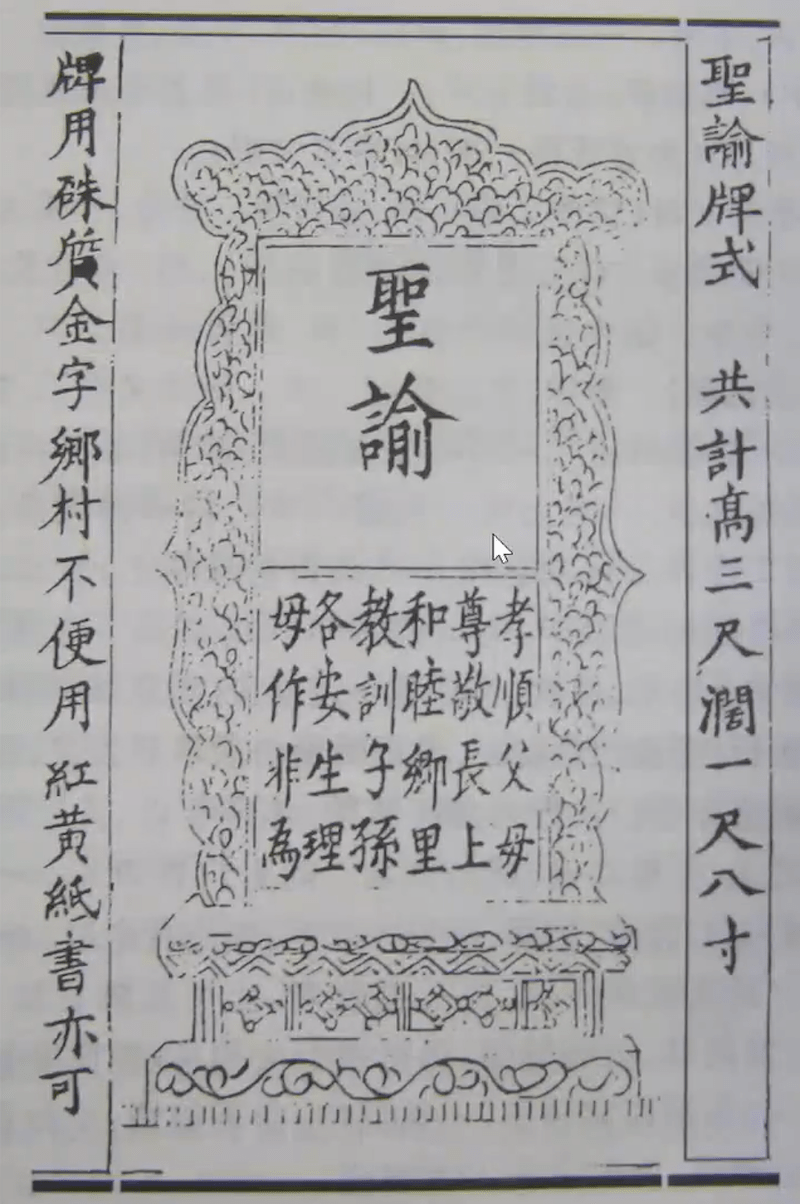 聖諭牌式　共計高三尺濶一尺八寸
聖諭
孝順父母
尊敬長上
和睦鄉里
教訓子孫
各安生理
毋作非為
牌用硃質金字鄉村不便用紅黄紙書亦可